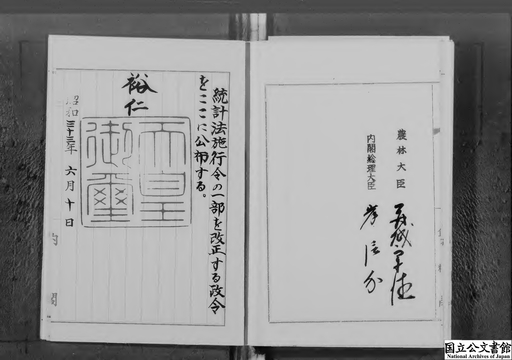 農林大臣 赤城宗徳
内閣総理大臣 岸信介
統計法施行令の一部を改正する政令
をここに公布する。
裕仁
天皇
御璽
昭和三十三年 六月十日
内閣
国立公文書館
National Archives of Japan